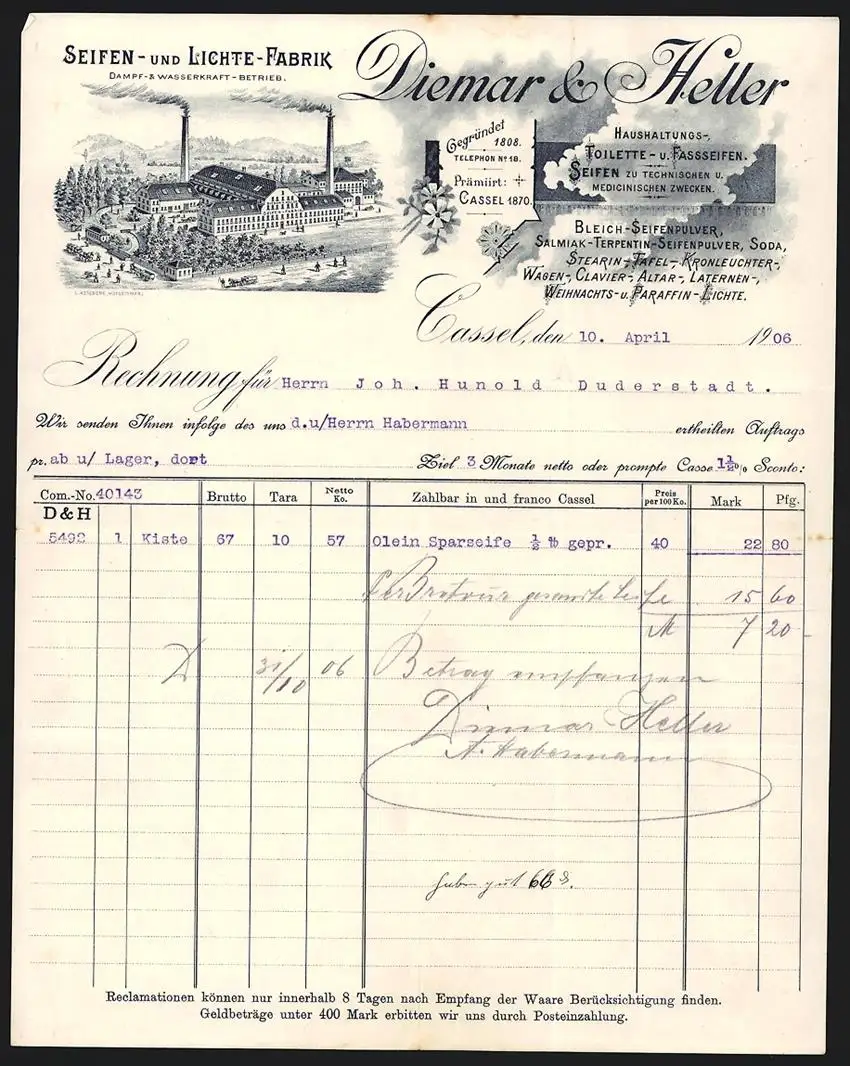 Seifen- und Lichte-Fabrik
Dampf- & Wasserkraft-Betrieb.
Diemar & Heller
Gegründet 1808.
Telephon No 18.
Prämiirt:
Cassel 1870.
Haushaltungs-,
Toilette- u. Fassseifen.
Seifen zu technischen u.
medicinischen Zwecken.
Bleich-Seifenpulver,
Salmiak-Terpentin-Seifenpulver, Soda,
Stearin-, Tafel-, Kronleuchter-,
Wagen-, Clavier-, Altar-, Laternen-,
Weihnachts- u. Paraffin-Lichte.
Cassel, den 10. April 1906
Rechnung für Herrn Joh. Hunold Duderstadt.
Wir senden Ihnen infolge des uns d.u/Herrn Habermann ertheilten Auftrags
pr. ab u/ Lager, dort Ziel 3 Monate netto oder prompte Casse 1½% Sconto:
Com.-No. 40143 Brutto Tara Netto Ko. Zahlbar in und franco Cassel Preis per 100 Ko. Mark Pfg.
D & H
5492 1 Kiste 67 10 57 Olein Sparseife ½ ℔ gepr. 40 22 80
Retour gesandte Seife 15 60
M 7 20
31/10 06 Betrag empfangen
Diemar Heller
A. Habermann
gut 66
Reclamationen können nur innerhalb 8 Tagen nach Empfang der Waare Berücksichtigung finden.
Geldbeträge unter 400 Mark erbitten wir uns durch Posteinzahlung.